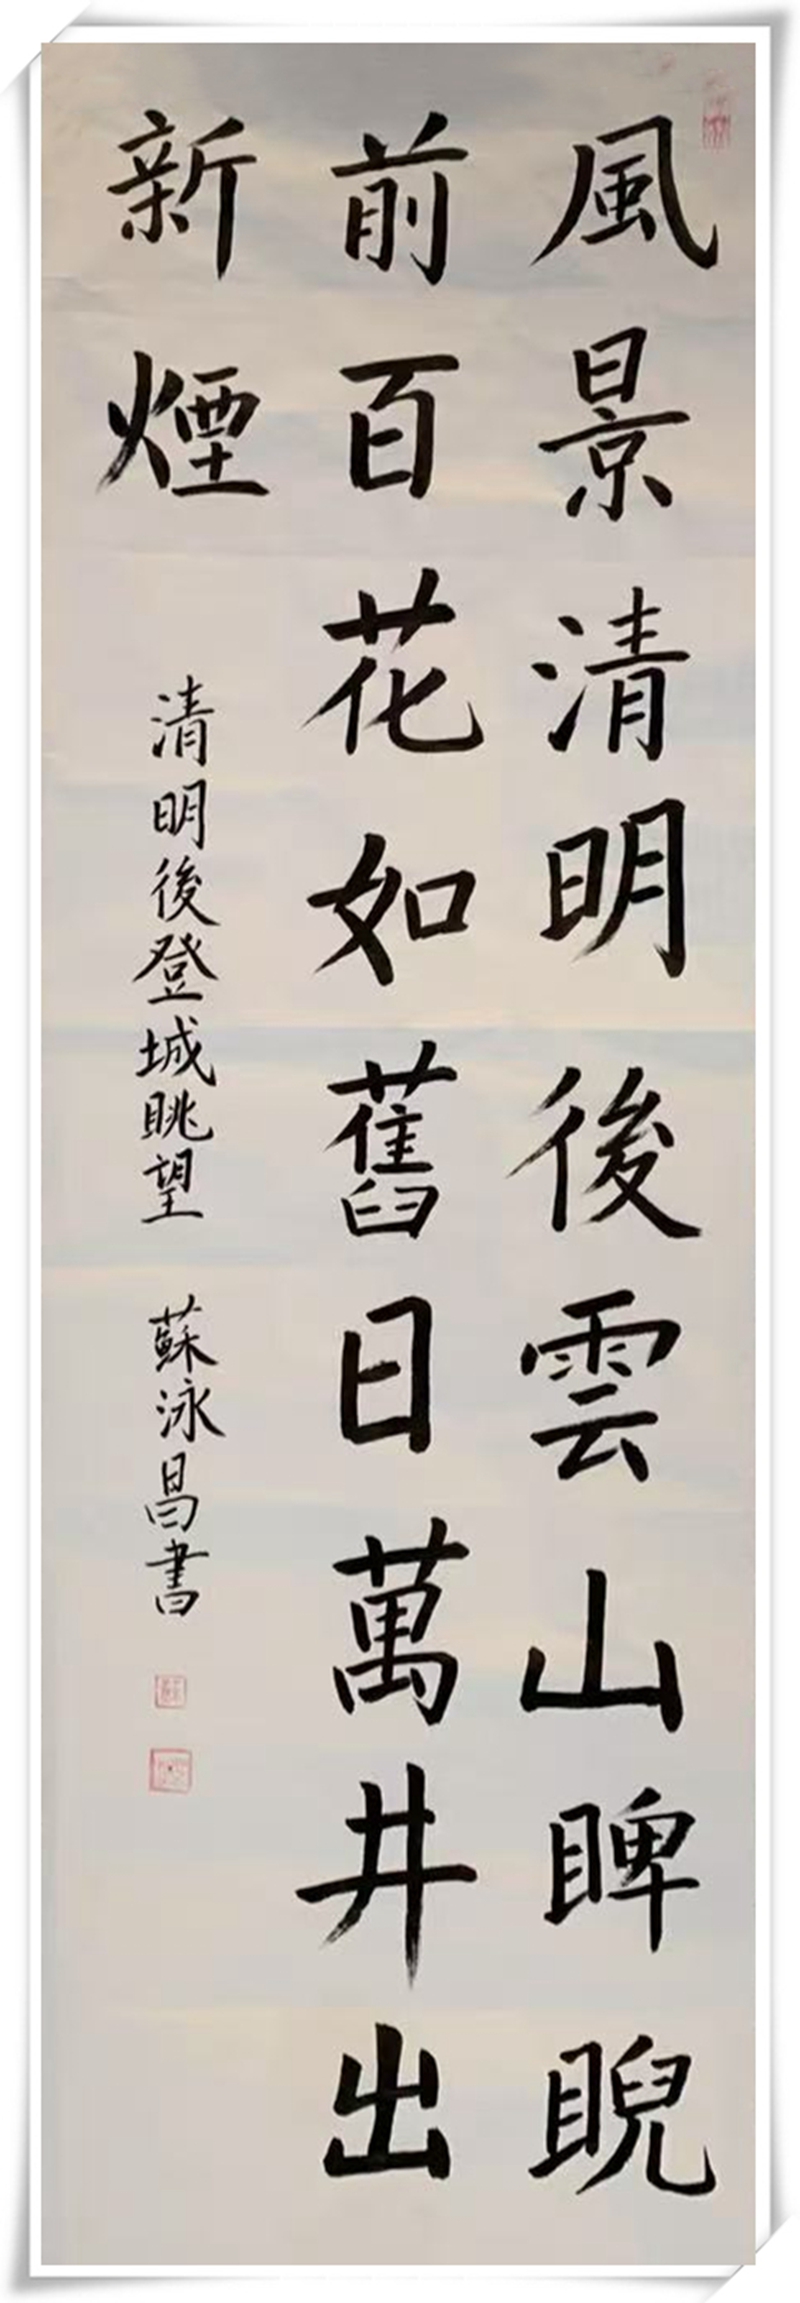 風景清明後雲山睥睨
前百花如舊日萬井出
新煙
清明後登城眺望 蘇泳昌書